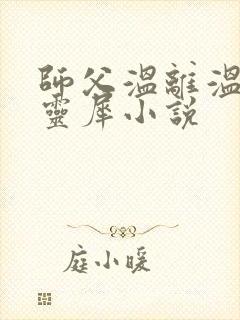 師父溫離溫
靈犀小說
庭小暖